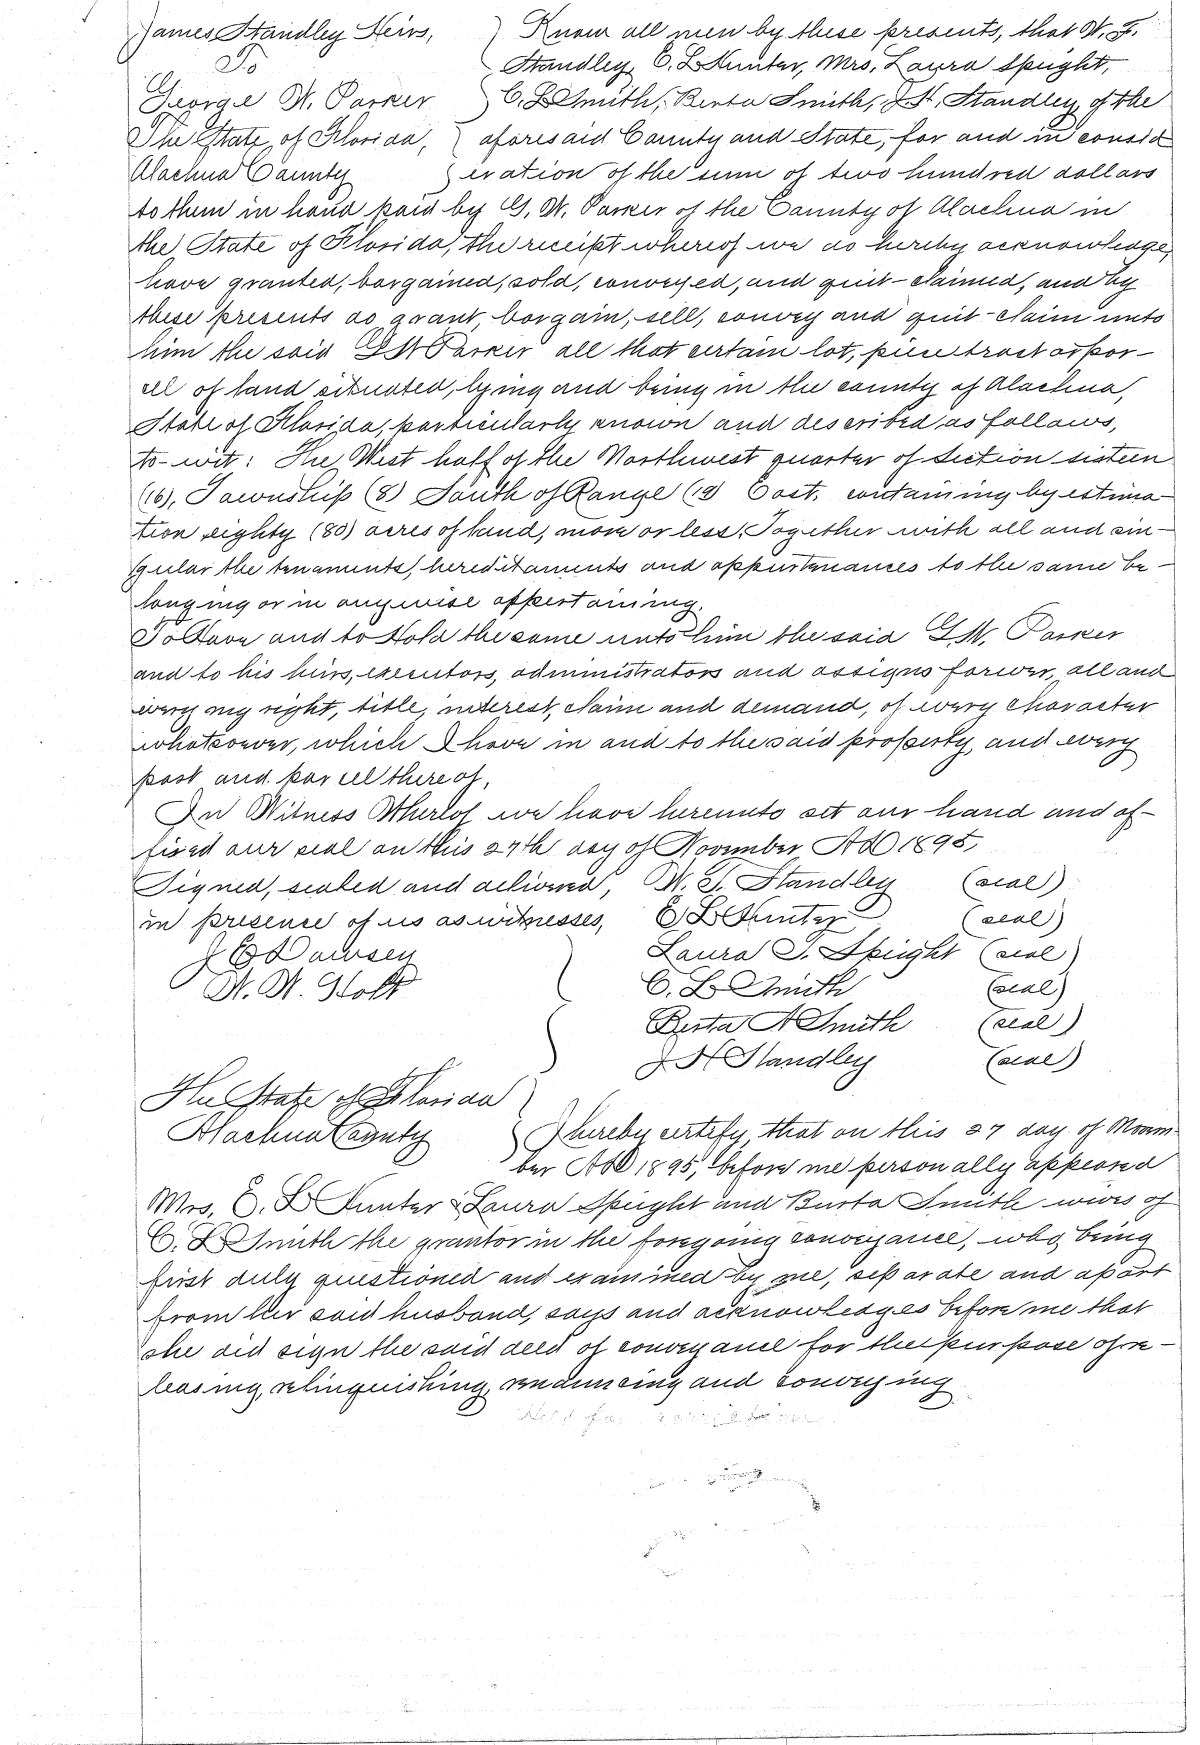 James Standley Heirs, } Know all men by these presents, that W. F.
To Standley, E. L. Hunter, Mrs. Laura Speight,
George W. Parker } C. L. Smith, Berta Smith, J. H. Standley, of the
The State of Florida, } aforesaid County and State, for and in consid
Alachua County } eration of the sum of two hundred dollars
to them in hand paid by G. W. Parker of the County of Alachua in
the State of Florida, the receipt whereof we do hereby acknowledge,
have granted, bargained, sold, conveyed, and quit-claimed, and by
these presents do grant, bargain, sell, convey and quit-claim unto
him the said G W Parker all that certain lot, piece tract or par-
cel of land situated, lying and being in the county of Alachua,
State of Florida, particularly known and described as follows,
to-wit: The West half of the Northwest quarter of Section sixteen
(16), Township (8) South of Range (19) East. containing by estima-
tion eighty (80) acres of land, more or less. Together with all and sin-
gular the tenaments, hereditaments and appurtenances to the same be-
longing or in anywise appertaining.
To Have and to Hold the same unto him the said G. W. Parker
and to his heirs, executors, administrators and assigns forever, all and
every my right, title, interest, claim and demand, of every character
whatsoever, which I have in and to the said property, and every
part and parcel thereof.
In Witness Whereof we have hereunto set our hand and af-
fixed our seal on this 27th day of November AD 1895,
Signed, sealed and delivered, W. F. Standley (seal)
in presence of us as witnesses, E L Hunter (seal)
J E Dawsey Laura T. Speight (seal)
W. W. Holt } C. L Smith (seal)
Berta A Smith (seal)
} J H Standley (seal)
The State of Florida }
Alachua County } I hereby certify, that on this 27 day of Novem-
ber AD 1895, before me personally appeared
Mrs, E. L Hunter & Laura Speight and Burta Smith wives of
C. L Smith the grantor in the foregoing conveyance, who, being
first duly questioned and examined by me, separate and apart
from her said husband, says and acknowledges before me that
she did sign the said deed of conveyance for the purpose of re-
leasing, relinquishing, renouncing and conveying